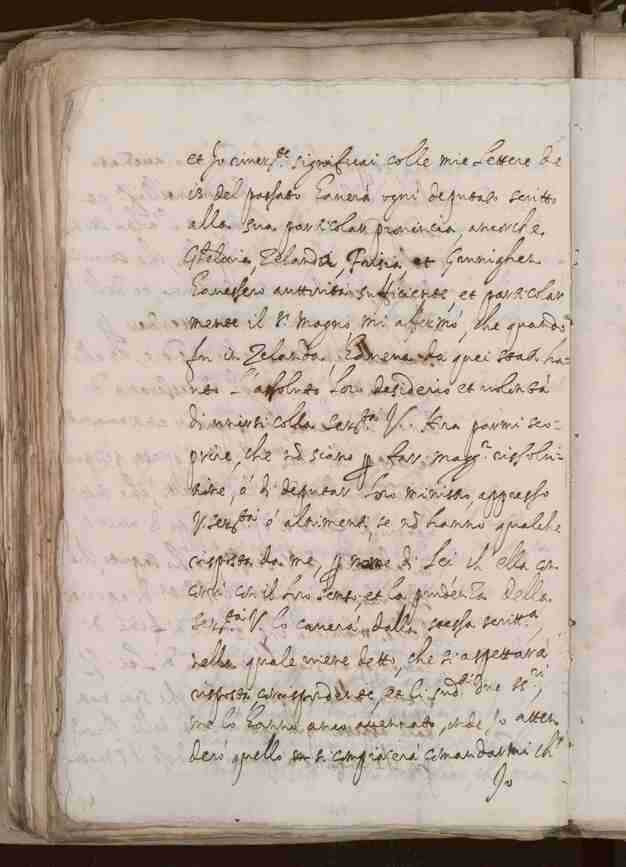 et Io rever.te significai colle mie lettere de
13 del passato haverà ogni deputato scritto
alla sua particolar provincia ancorche
Gheldria, Zelanda, Frisia, et Gruninghen
havessero auttorità sufficiente et particolar
mente il S.r Magno mi affermò, che quando
fu in Zelanda, haveva da quei stati ha-
uuto l'assoluto loro desiderio et volontà
di unirsi colla Ser.tà V. Hora parmi sco-
prire, che nõ siano p far magg.r rissolu-
tione, ò di deputar loro ministro appresso
V. Ser.tà ò altrimenti, se nõ hanno qualche
risposta da me, p nome di Lei ch'ella con
corri con il loro senso, et la prudenza della
Ser.tà V. lo caverà dalla stessa scritt.a,
nella quale viene detto, che s'aspettarà
risposta corrispondente, et li sud.i due SS.ri,
me lo hanno anco accennato, onde Io atten
derò quello si compiacerà comandarmi ch'
Io